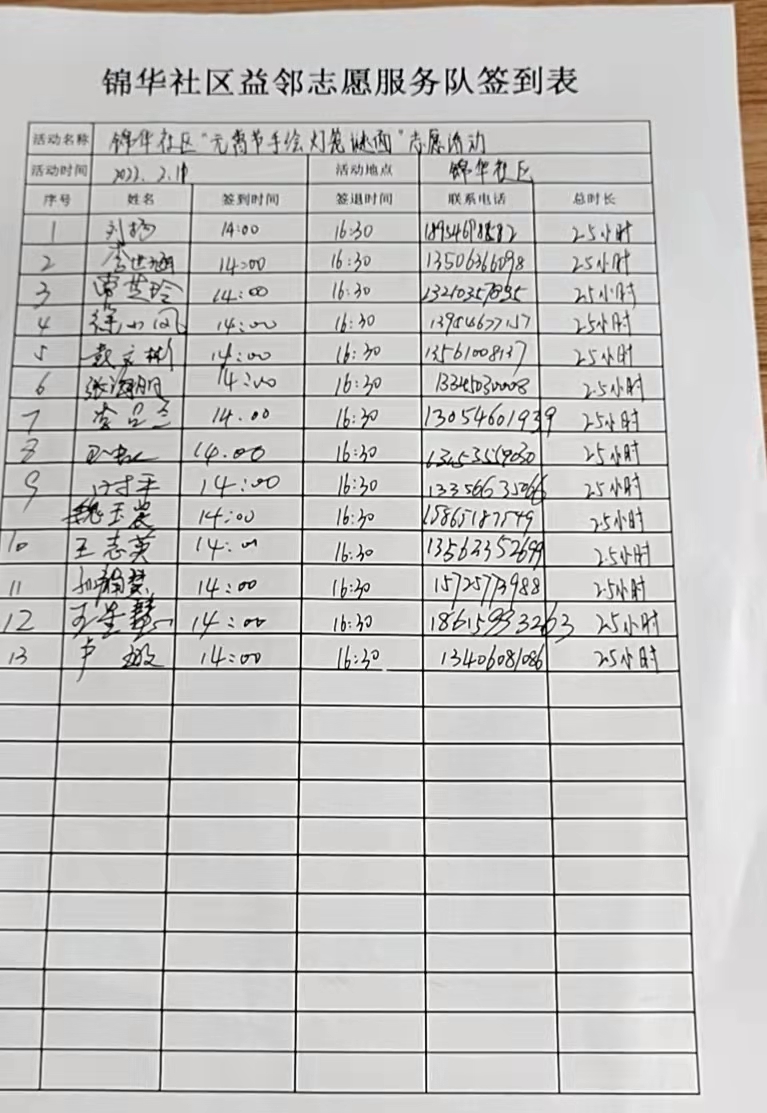 锦华社区益邻志愿服务队签到表
活动名称 锦华社区"元宵节手绘灯笼谜面"志愿活动
活动时间 2022.2.11 活动地点 锦华社区
序号 姓名 签到时间 签退时间 联系电话 总时长
1 刘杨 14:00 16:30 2.5小时
2 李世涵 14:00 16:30 13506366098 2.5小时
3 14:00 16:30 2.5小时
4 徐小凤 14:00 16:30 13954677157 2.5小时
5 14:00 16:30 13561008137 2.5小时
6 张海朋 14:00 16:30 2.5小时
7 14.00 16:30 13054601939 2.5小时
8 14.00 16:30 2.5小时
9 14:00 16:30 13356635066 2.5小时
魏玉岩 14:00 16:30 15865187549 2.5小时
10 王志英 14:00 16:30 13562352699 2.5小时
11 14:00 16:30 2.5小时
12 14:00 16:30 18615933263 2.5小时
13 卢敏 14:00 16:30 13406081086 2.5小时